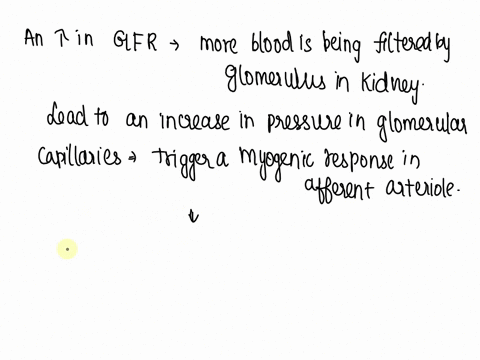 An ↑ in GFR → more blood is being filtered by
glomerulus in kidney.
Lead to an increase in pressure in glomerular
capillaries → trigger a myogenic response in
afferent arteriole.
↓